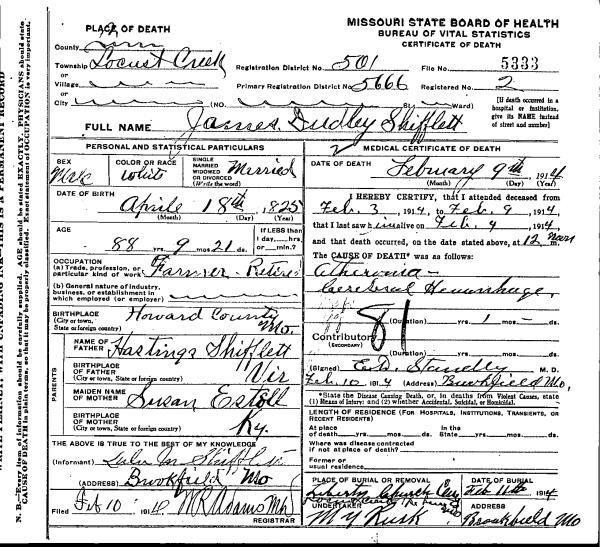 MISSOURI STATE BOARD OF HEALTH
BUREAU OF VITAL STATISTICS
CERTIFICATE OF DEATH
PLACE OF DEATH
County
Township Locust Creek
or
Village
or
City (NO. St. Ward)
Registration District No. 501 File No. 5333
Primary Registration District No. 5666 Registered No. 2
[If death occurred in a hospital or institution, give its NAME instead of street and number]
FULL NAME James Dudley Shifflett
PERSONAL AND STATISTICAL PARTICULARS
SEX Male
COLOR OR RACE White
SINGLE MARRIED WIDOWED OR DIVORCED (Write the word) Married
DATE OF BIRTH
April 18th, 1825
(Month) (Day) (Year)
AGE
88 yrs. 9 mos. 21 ds.
If LESS than
1 day,....hrs.
or....m.
OCCUPATION
(a) Trade, profession, or
particular kind of work Farmer - Retired
(b) General nature of industry,
business, or establishment in
which employed (or employer)
BIRTHPLACE
(City or town,
State or foreign country) Howard County Mo.
PARENTS
NAME OF
FATHER Hastings Shifflett
BIRTHPLACE
OF FATHER
(City or town, State or foreign country) Vir
MAIDEN NAME
OF MOTHER Susan Estill
BIRTHPLACE
OF MOTHER
(City or town, State or foreign country) Ky.
THE ABOVE IS TRUE TO THE BEST OF MY KNOWLEDGE
(Informant)
(ADDRESS) Brookfield Mo
Filed Feb 10 1914 M R Adams
REGISTRAR
MEDICAL CERTIFICATE OF DEATH
DATE OF DEATH
February 9th, 1914
(Month) (Day) (Year)
I HEREBY CERTIFY, that I attended deceased from
Feb. 3, 1914, to Feb. 9, 1914
that I last saw him alive on Feb. 9, 1914,
and that death occurred, on the date stated above, at 12 noon
The CAUSE OF DEATH* was as follows:
Atheroma -
Cerebral Hemorrhage,
81
(Duration) yrs. 1 mos. - ds.
Contributory
(SECONDARY)
(Duration) yrs. mos. ds.
(Signed) E.D. Standly M. D.
Feb. 10 1914 (Address) Brookfield Mo,
*State the Disease Causing Death, or, in deaths from Violent Causes, state
(1) Means of Injury; and (2) whether Accidental, Suicidal, or Homicidal.
LENGTH OF RESIDENCE (FOR HOSPITALS, INSTITUTIONS, TRANSIENTS, OR
RECENT RESIDENTS)
At place In the
of death yrs. mos. ds. State yrs. mos. ds.
Where was disease contracted
if not at place of death?
Former or
usual residence
PLACE OF BURIAL OR REMOVAL
Liberty Church Cem
DATE OF BURIAL
Feb 11th 1914
UNDERTAKER
M Y Rusk
ADDRESS
Brookfield Mo
N. B.—Every item of information should be carefully supplied. AGE should be stated EXACTLY. PHYSICIANS should state
CAUSE OF DEATH in plain terms, so that it may be properly classified. Exact statement of OCCUPATION is very important.